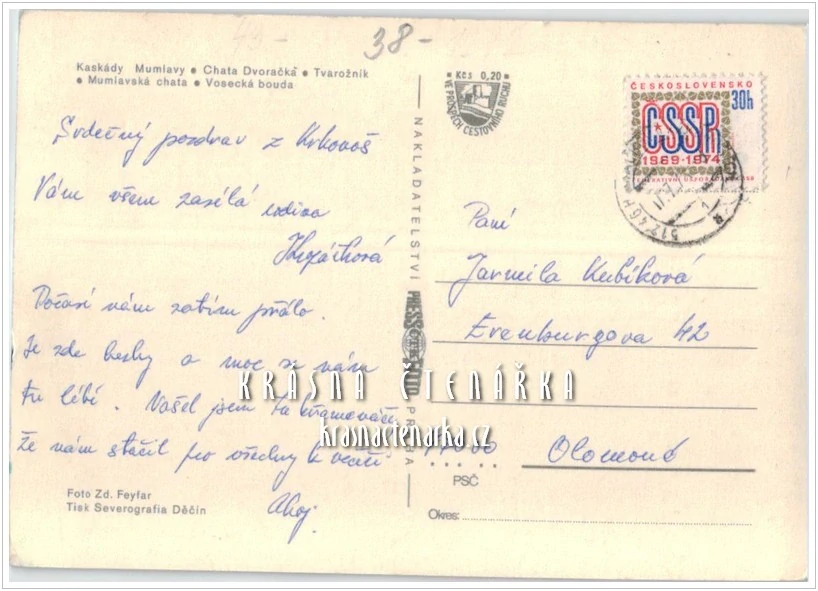 43- 38-
Kaskády Mumlavy • Chata Dvoračka • Tvarožník
• Mumlavská chata • Vosecká bouda
Kčs 0,20
VE PROSPĚCH CESTOVNÍHO RUCHU
ČESKOSLOVENSKO
30h
ČSSR
1969-1974
512 46 H
Srdečný pozdrav z Krkonoš
Vám všem zasílá rodina
Počasí nám zatím přálo.
Je zde hezky a moc se nám
tu líbí. Našel jsem
že nám stačil pro všechny k večeři
Ahoj.
Foto Zd. Feyfar
Tisk Severografia Děčín
NAKLADATELSTVÍ PRESSFOTO PRAHA
Paní
Jarmila Kubíková
Erenburgova 42
77000 Olomouc
PSČ
Okres:
KRÁSNÁ ČTENÁŘKA
krasnactenarka.cz